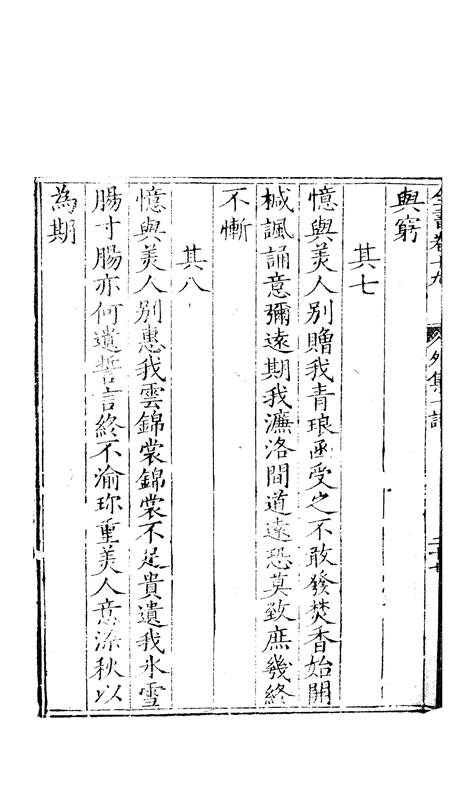 全書卷十九 外集一 詩 二十七
與窮
其七
憶與美人别贈我青琅函受之不敢發焚香始開
椷諷誦意彌遠期我濂洛間道遠恐莫致庶幾終
不慚
其八
憶與美人别惠我雲錦裳錦裳不足貴遺我氷雪
腸寸腸亦何遺誓言終不渝珎重美人意深秋以
為期